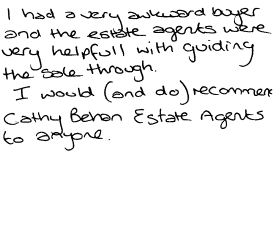 I had a very awkward buyer
and the estate agents were
very helpfull with guiding
the sale through.
I would (and do) recommen
Cathy Behan Estate Agents
to anyone.